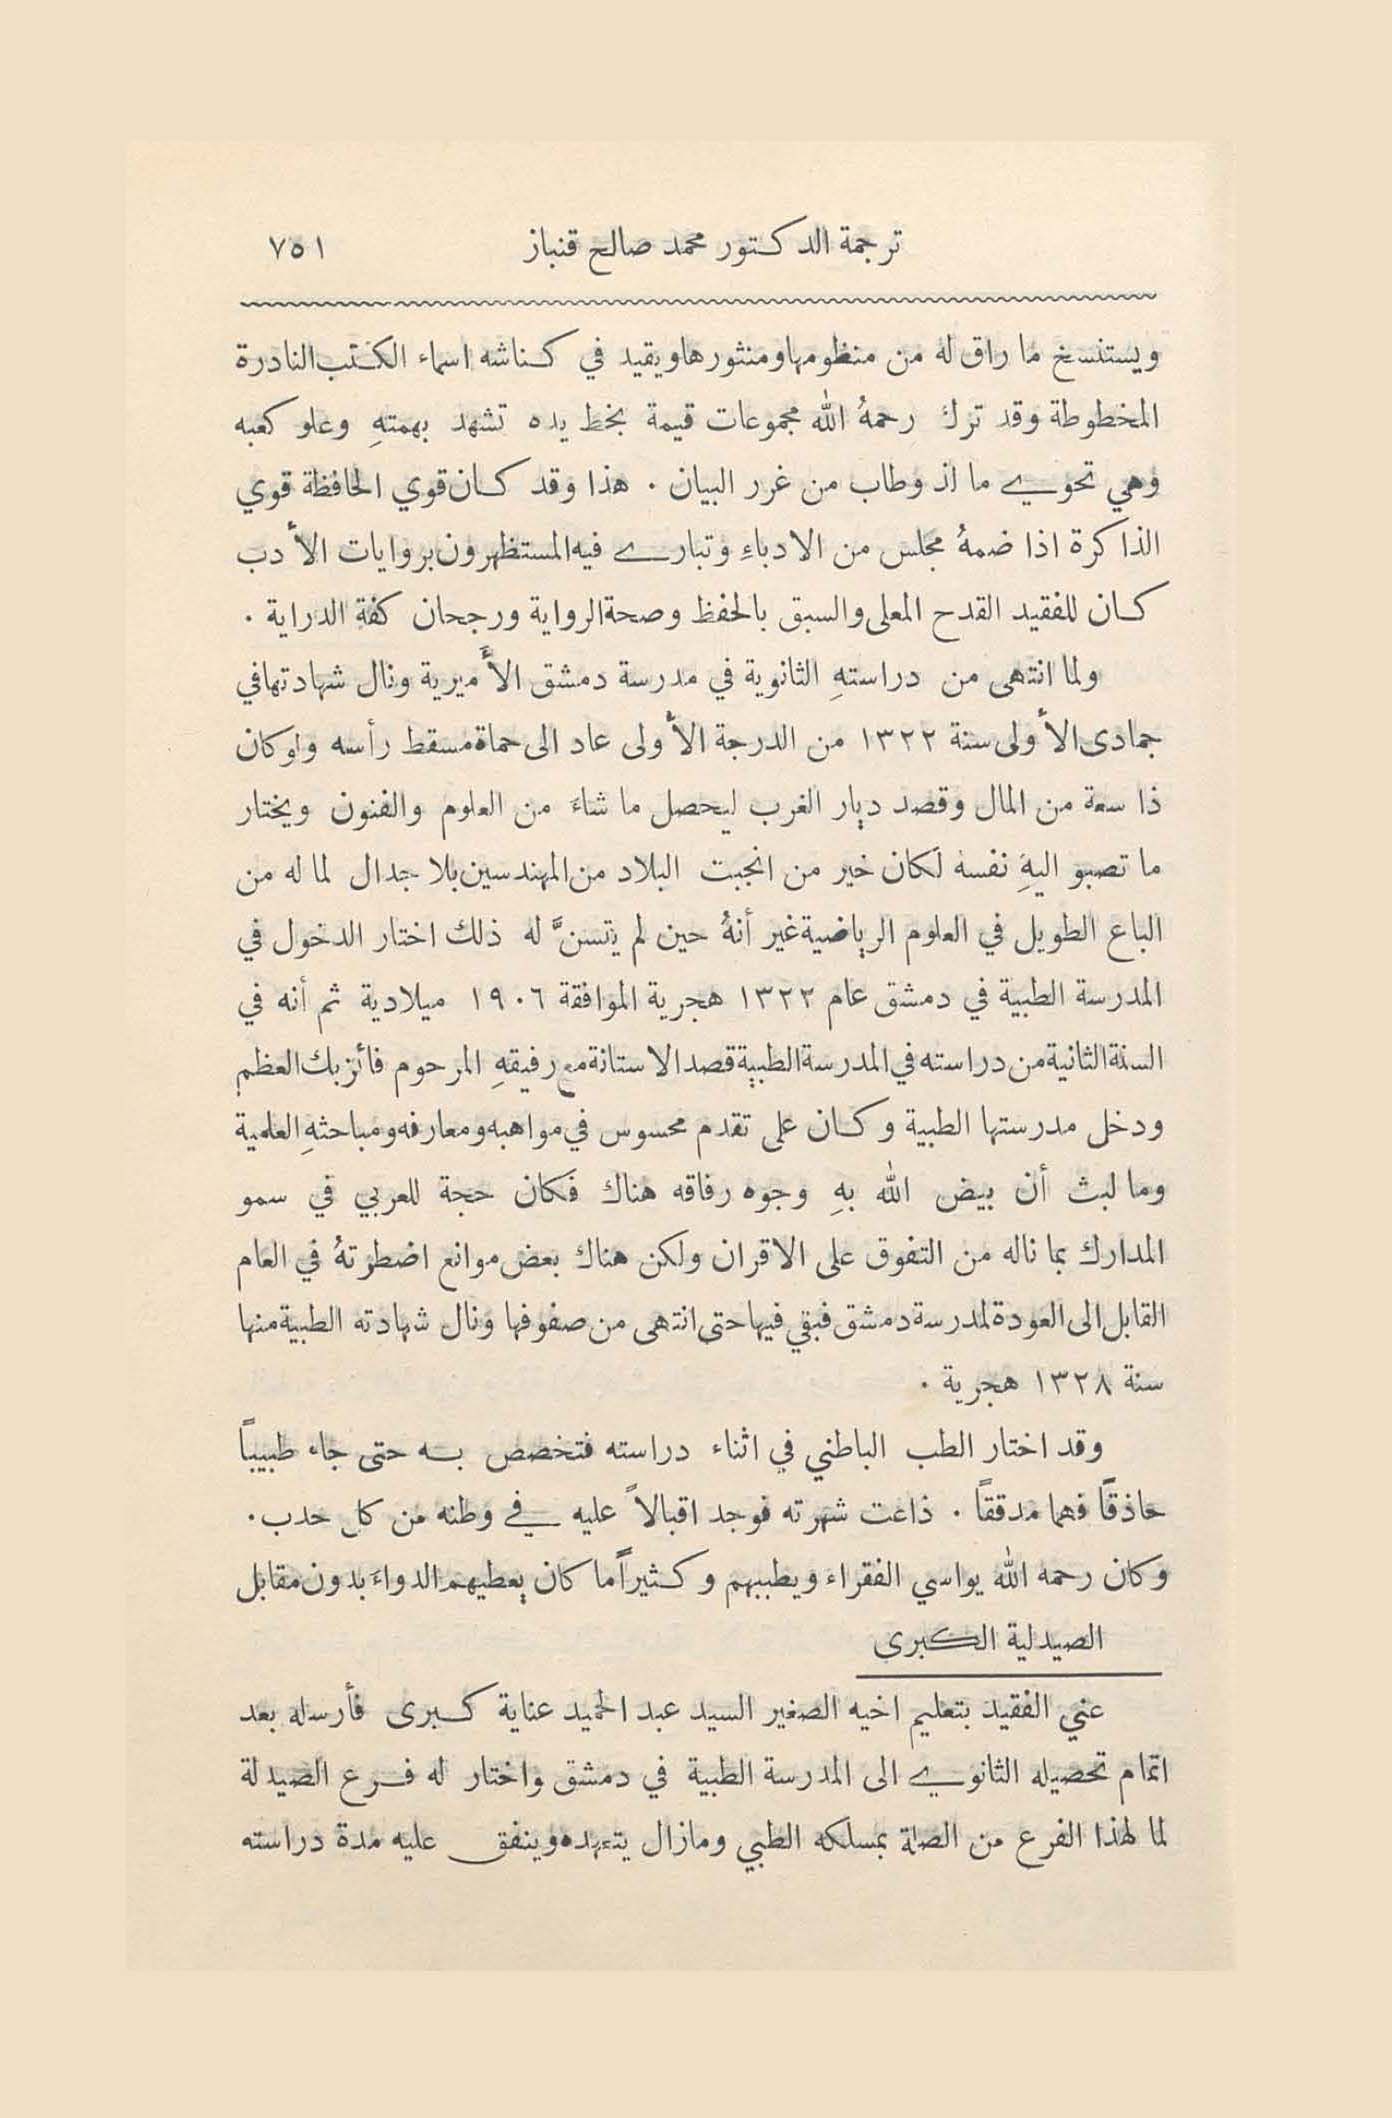 ترجمة الدكتور محمد صالح قنباز ٧٥١
ويستنسخ ما راق له من منظومها ومنثورها ويقيد في كناشه اسماء الكتب النادرة
المخطوطة وقد ترك رحمهُ الله مجموعات قيمة بخط يده تشهد بهمتهِ وعلو كعبه
وهي تحوي ما لذ وطاب من غرر البيان . هذا وقد كان قوي الحافظة قوي
الذاكرة اذا ضمهُ مجلس من الادباءِ وتبارى فيه المستظهرون بروايات الأدب
كان للفقيد القدح المعلى والسبق بالحفظ وصحة الرواية ورجحان كفة الدراية .
ولما انتهى من دراستهِ الثانوية في مدرسة دمشق الأَميرية ونال شهادتها في
جمادى الأولى سنة ١٣٢٢ من الدرجة الأولى عاد الى حماة مسقط رأسه ولو كان
ذا سعة من المال وقصد ديار الغرب ليحصل ما شاءَ من العلوم والفنون ويختار
ما تصبو اليهِ نفسه لكان خير من انجبت البلاد من المهندسين بلا جدال لما له من
الباع الطويل في العلوم الرياضية غير أنهُ حين لم يتسنَّ له ذلك اختار الدخول في
المدرسة الطبية في دمشق عام ١٣٢٢ هجرية الموافقة ١٩٠٦ ميلادية ثم أنه في
السنة الثانية من دراسته في المدرسة الطبية قصد الاستانة مع رفيقهِ المرحوم فائز بك العظم
ودخل مدرستها الطبية وكان على تقدم محسوس في مواهبه ومعارفه ومباحثهِ العلمية
وما لبث أن بيض الله بهِ وجوه رفاقه هناك فكان حجة للعربي في سمو
المدارك بما ناله من التفوق على الاقران ولكن هناك بعض موانع اضطرتهُ في العام
القابل الى العودة لمدرسة دمشق فبقي فيها حتى انتهى من صفوفها ونال شهادته الطبية منها
سنة ١٣٢٨ هجرية .
وقد اختار الطب الباطني في اثناء دراسته فتخصص به حتى جاء طبيباً
حاذقاً فهما مدققاً . ذاعت شهرته فوجد اقبالاً عليه في وطنه من كل حدب .
وكان رحمه الله يواسي الفقراء ويطببهم وكثيراً ما كان يعطيهم الدواءَ بدون مقابل
الصيدلية الكبرى
عني الفقيد بتعليم اخيه الصغير السيد عبد الحميد عناية كبرى فأرسله بعد
اتمام تحصيله الثانوي الى المدرسة الطبية في دمشق واختار له فرع الصيدلة
لما لهذا الفرع من الصلة بمسلكه الطبي وما زال يتعهده وينفق عليه مدة دراسته